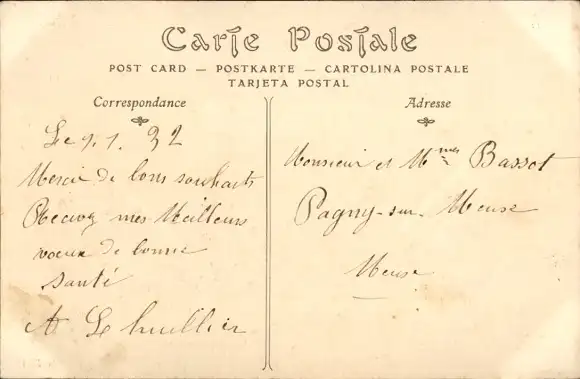 Carte Postale
POST CARD — POSTKARTE — CARTOLINA POSTALE
TARJETA POSTAL
Correspondance
Le 9. 1. 32
Merci de bons souhaits
Recevez mes Meilleurs
voeux de bonne
santé
A Lhuillier
Adresse
Monsieur et Mmes Bassot
Pagny-sur-Meuse
Meuse